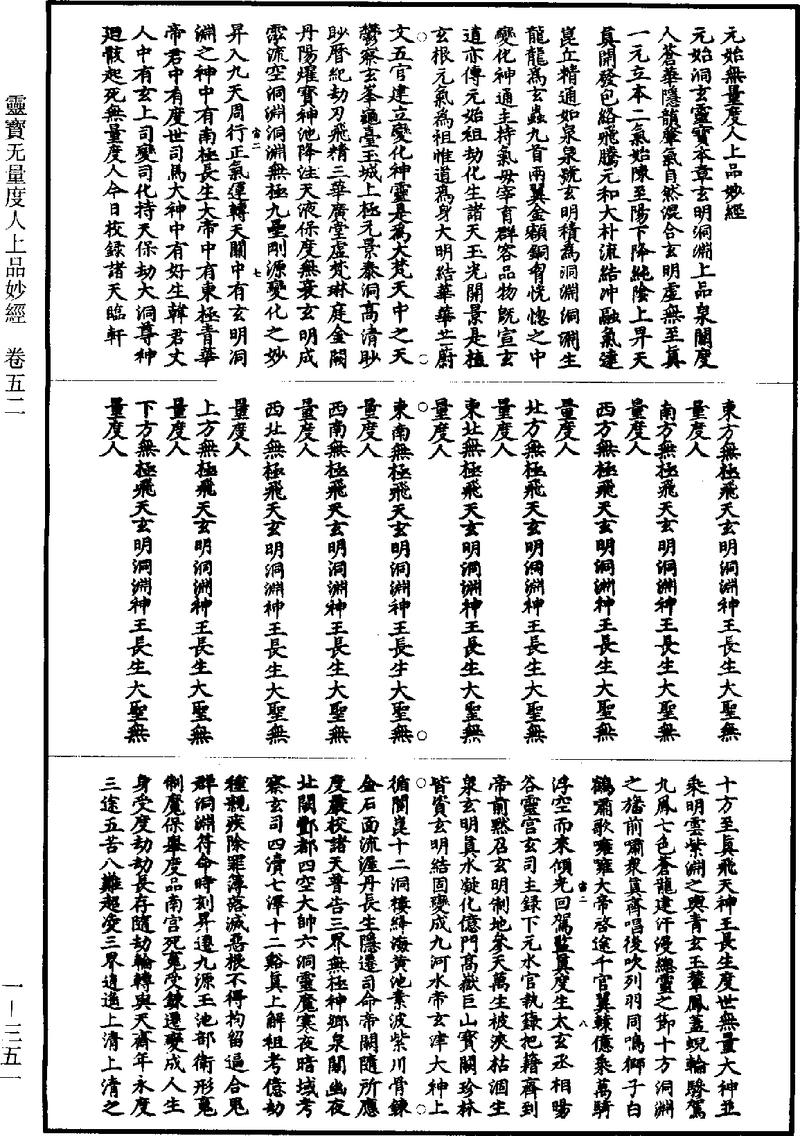 元始無量度人上品妙經
元始洞玄靈寶本章玄明洞淵上品泉關度
人蒼華隱韻肇氣自然混合玄明虛無至真
一元立本二氣始陳至陽下降純陰上昇天
真開發包絡飛騰元和大朴流結沖融氣達
崑丘精通如泉泉號玄明積為洞淵洞淵生
龍龍為玄蟲九首兩翼金額銅胷恍惚之中
變化神通主持氣毋宰育群容品物旣宣玄
道亦傳元始祖劫化生諸天玉光開景是植
玄根元氣為祖惟道為身大明結華華芷蔚
文五官建立變化神靈是為大梵天中之天
鬱察玄峯龜臺玉城上極元景泰洞高清眇
眇曆紀劫刃飛精三華廣堂虛梵琳庭金闕
丹陽燿寶神池降注天液保度無衰玄明成
霑流空洞淵洞淵無極九壘剛源變化之妙
昇入九天周行正氣運轉天關中有玄明洞
淵之神中有南極長生大帝中有東極青華
帝君中有度世司馬大神中有好生韓君丈
人中有玄上司變司化持天保劫大洞尊神
廻骸起死無量度人今日校錄諸天臨軒
東方無極飛天玄明洞淵神王長生大聖無
量度人
南方無極飛天玄明洞淵神王長生大聖無
量度人
西方無極飛天玄明洞淵神王長生大聖無
量度人
北方無極飛天玄明洞淵神王長生大聖無
量度人
東北無極飛天玄明洞淵神王長生大聖無
量度人
東南無極飛天玄明洞淵神王長生大聖無
量度人
西南無極飛天玄明洞淵神王長生大聖無
量度人
西北無極飛天玄明洞淵神王長生大聖無
量度人
上方無極飛天玄明洞淵神王長生大聖無
量度人
下方無極飛天玄明洞淵神王長生大聖無
量度人
十方至真飛天神王長生度世無量大神並
乘明雲紫淵之輿青玄玉輦鳳蓋蜺輪驂駕
九鳳七色蒼龍建汗漫總靈之節十方洞淵
之旛前嘯衆真齊唱後吹列羽同鳴獅子白
鶴嘯歌嗈嗈大帝啓途千官翼轅億乘萬騎
浮空而來傾光回駕監真度生太玄丞相暘
谷靈宮玄司主錄下元水官執籙把籍齊到
帝前黙召玄明制地參天萬生被浹枯涸生
泉玄明真水凝化億門高嶽巨山寶闕珍林
皆資玄明結固變成九河水帝玄津大神上
循閬崑十二洞樓絳海黄池素波紫川骨鍊
金石面流渥丹長生隱遷司命帝關隨所應
度嚴校諸天普告三界無極神鄉泉關幽夜
北關酆都四空大帥六洞靈魔寒夜暗域考
察玄司四瀆七澤十二谿真上解祖考億劫
種親疾除罪簿落滅惡根不得拘留逼合鬼
群洞淵符命時刻昇遷九源玉池部衛形魂
制魔保舉度品南宮死魂受鍊遷變成人生
身受度劫劫長存隨劫輪轉與天齊年永度
三途五苦八難超凌三界逍遥上清上清之
靈寶无量度人上品妙經　卷五二
一—三五一